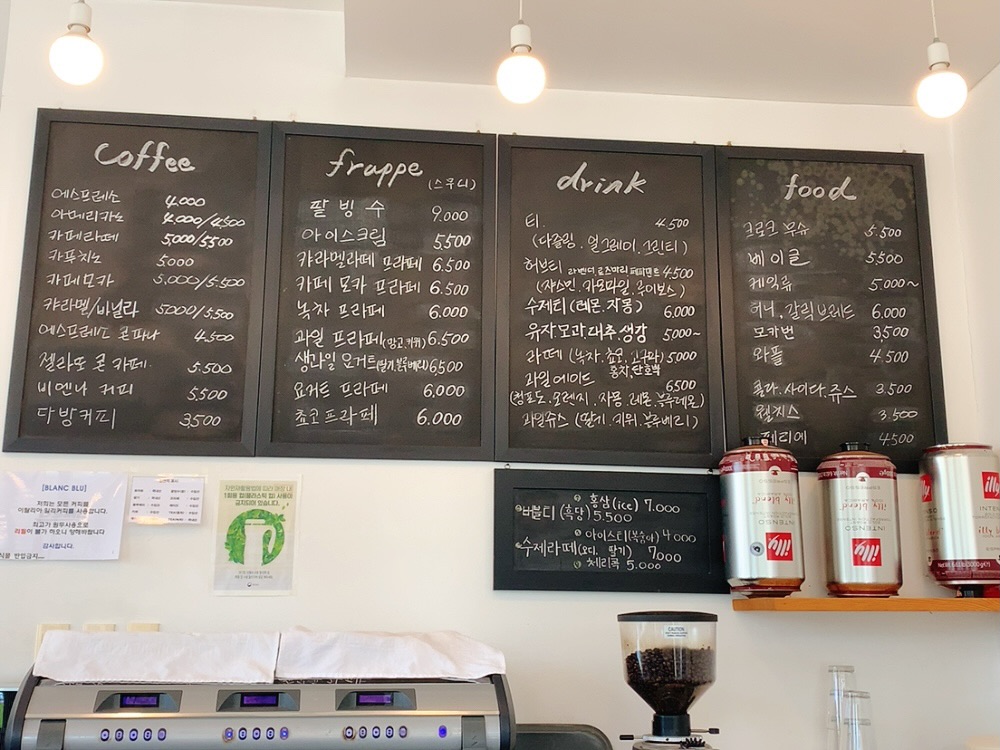 coffee
에스프레소 4.000
아메리카노 4.000/4.500
카페라떼 5,000/5500
카푸치노 5000
카페모카 5,000/5,500
카라멜/바닐라 5000/5.500
에스프레소 콘파나 4.500
젤라또 콘 카페. 5.500
비엔나 커피 5,500
다방커피 3,500
frappe
(스무디)
팥빙수 9.000
아이스크림 5,500
카라멜라떼 프라페 6.500
카페 모카 프라페 6.500
녹차 프라페 6.000
과일 프라페(망고,키위) 6.500
생과일 요거트(딸기,블루베리) 6,500
요거트 프라페 6,000
쵸코프라페 6.000
drink
티. 4.500
(다즐링. 얼그레이. 그린티)
허브티 라벤더,로즈마리 페퍼민트 4500
(쟈스민, 카모마일, 루이보스)
수제티 (레몬.자몽) 6,000
유자.모과.대추.생강 5,000~
라떼 (녹차,쵸코,고구마) 5000
홍차,단호박
과일에이드 6500
(청포도.오렌지.자몽 레몬.블루레몬)
과일쥬스 (딸기. 키위. 블루베리)
food
크로크 무슈 5.500
베이글 5,500
케익류 5.000~
허니.갈릭브레드 6.000
모카번 3,500
와플 4.500
콜라.사이다.쥬스 3.500
웰치스 3.500
페리에 4.500
홍삼(ice) 7.000
버블티 (흑당) 5.500
아이스티(복숭아) 4000
수제라떼(오디. 딸기) 7,000
체리콕 5.000
[BLANC BLU]
저희는 모든 커피를
이탈리아 일리커피를 사용합니다.
최고가 원두사용으로
리필이 불가 하오니 양해바랍니다
감사합니다.
식품 반입금지
자원재활용법에 따라 매장 내
1회용 컵(플라스틱 컵) 사용이
금지되어 있습니다.
illy
illy blend
INTENSO
illy
illy blend
INTENSO
illy
illy blend
INTENSO
CAUTION